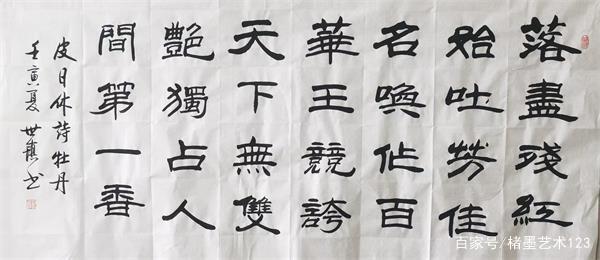 落盡殘紅
始吐芳佳
名喚作百
華王競誇
天下無雙
艷獨占人
間第一香
皮日休詩牡丹
壬寅夏 世 书
百家号/楮墨艺术123